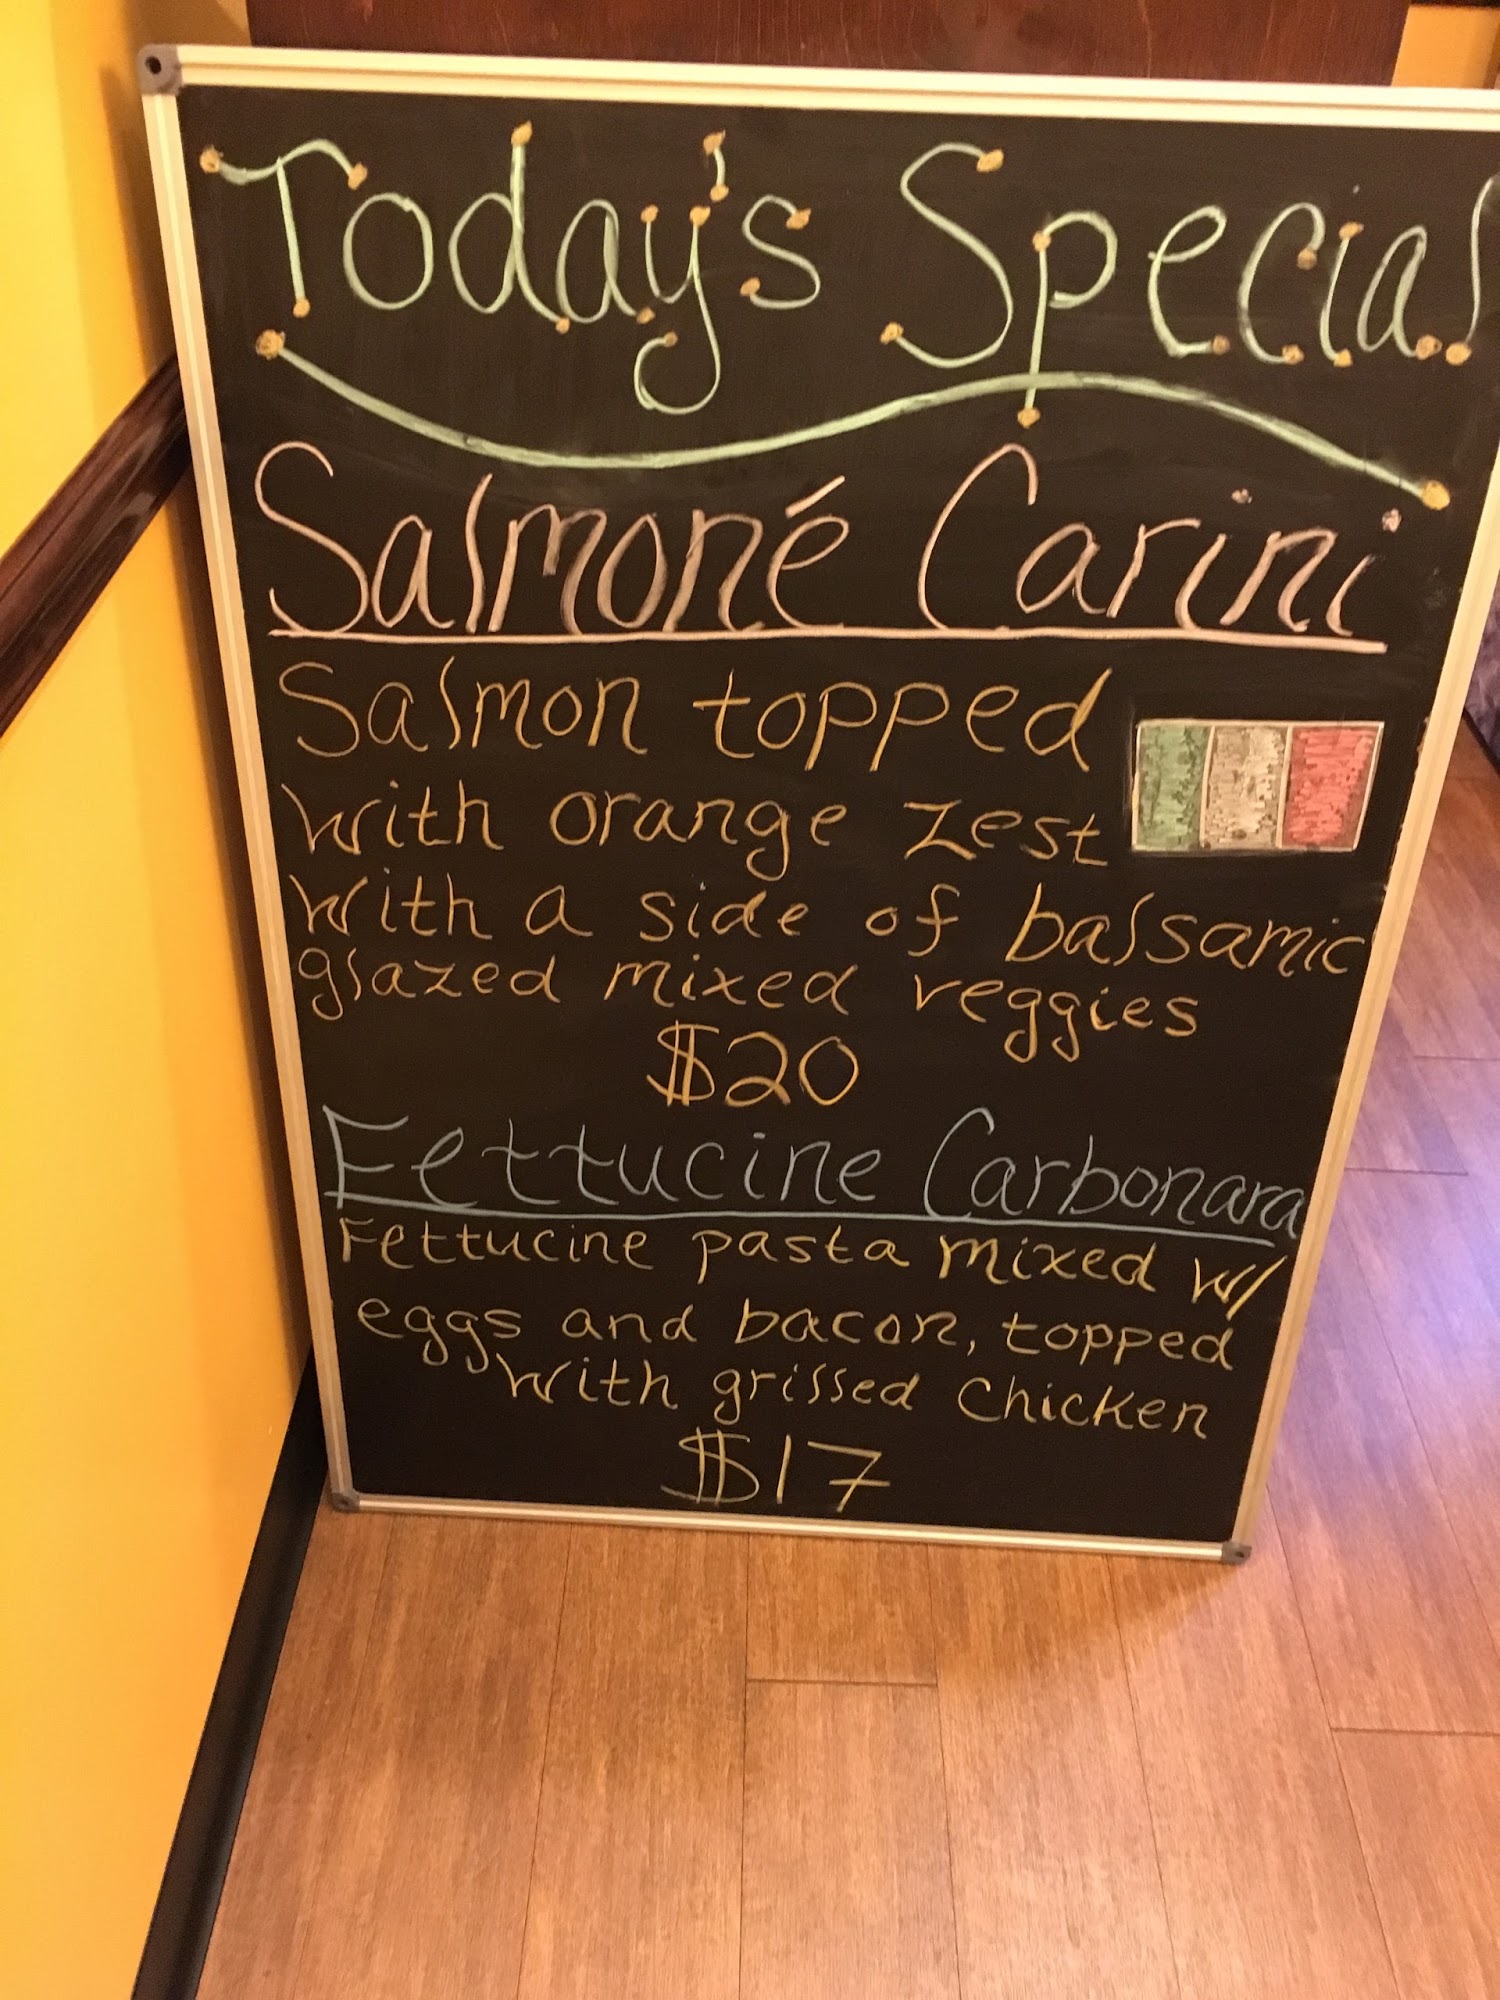 Today's Special
Salmoné Carini
Salmon topped
with orange zest
with a side of balsamic
glazed mixed veggies
$20
Fettucine Carbonara
Fettucine pasta mixed w/
eggs and bacon, topped
with grilled chicken
$17